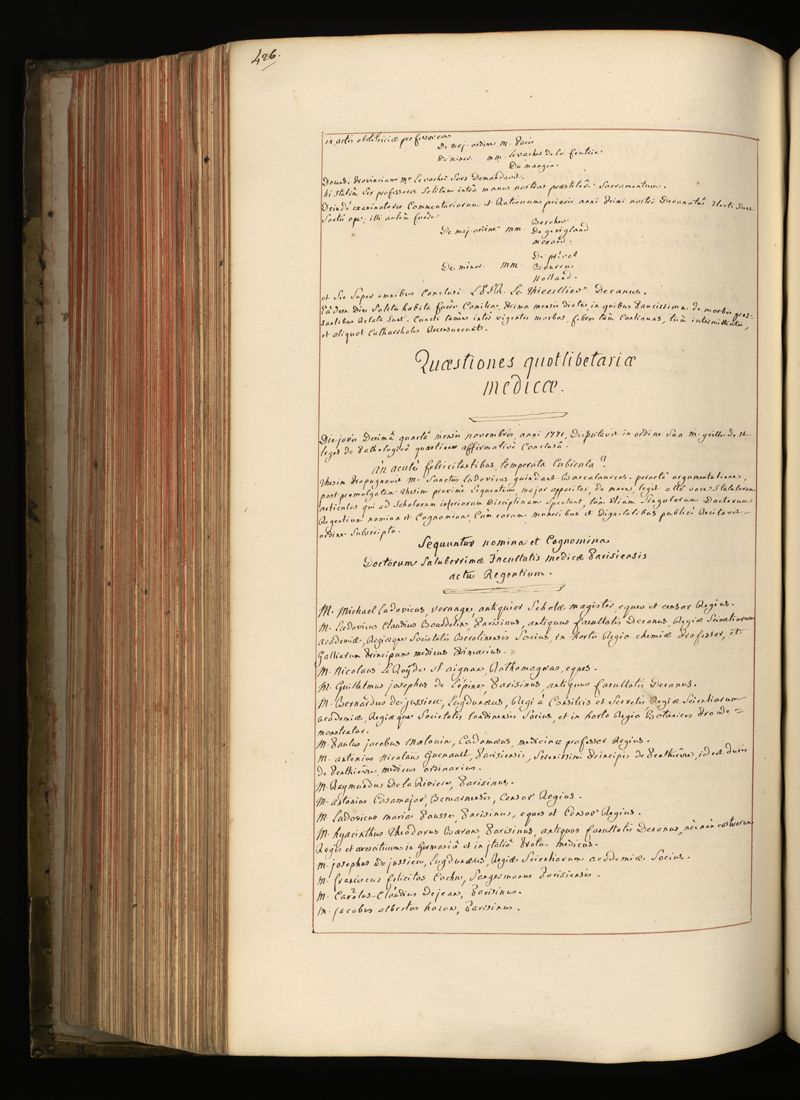 426.
in artis obstetriciæ professorem
De maj. ordine M. Paris
De minor. MM. Levacher de la feutrie
Dumangin.
hi statim ser professores solitum intrà manus nostras præstitere Sacramentum.
Deindè examinatores Commentariorum et Rationum prioris anni Primi nostri Decanatûs electi sunt
Sortis ope; illi autem fuere
Bercher
De maj. ordine MM. De gevigland
morand.
De préval
De minor. MM. Bourru
Holland.
et Sic Super omnibus Conclusi L. P. F. R. Le Thieullier Decanus.
Eâdem Die Solita habita fuere Comitia, prima mensis Dicta, in quibus pauci​ssima de morbis gras-
santibus Relata Sunt. Cuncti tamen inter vigentes morbos, febres tùm Continuas, tùm intermittentes,
et aliquot Catharrhales Recensuerunt.
Quæstiones quotlibetariæ
medicæ.
Die jovis Decimâ quartâ mensis novembris, anni 1771, Disputavit in ordine Suo M. geille de st
leger de Pathologicâ quæstione affirmativè Conclusâ.
an acutè febricitantibus temperata Cubicula?
thesim Propugnavit M. Sanctus Ludovicus guindant Baccalaureus. peractâ argumentatione,
post promulgatam thesim proximè Sequentem major apparitor, de more, legit altâ voce Statutorum
articulos qui ad Scholarum inferiorum Disciplinam Spectant, tùm etiam Singulorum Doctorum
Regentium nomina et Cognomina, Cum eorum muneribus et Dignitatibus publicè Recitavit
ordine Subscripto.
Sequuntur nomina et Cognomina
Doctorum Saluberrimæ Facultatis medicæ Parisiensis
actu Regentium.
M. Michael Ludovicus, vernage, antiquior Scholæ magister, eques et censor Regius.
M. Ludovicus Claudius Bourdelin, Parisinus, antiquus facultatis Decanus, Regiæ Scientiarum
academiæ, Regiæque Societatis Berolinensis Socius, in horto Regio chemiæ Professor, et
Galliarum Principum medicus Primarius.
M. Nicolaus LeRoy de st aignan, Rothomagæus, eques.
M. Guillelmus josephus de L'épine, Parisinus, antiquus facultatis Decanus.
M. Bernardus de jussieu, Lugdunæus, Regi à Consiliis et Secretis Regiæ Scientiarum
academiæ, Regiæque Societatis londinensis Socius, et in horto Regio Botanices Prode-
monstrator.
M. Paulus jacobus Malouin, Cadomæus, medicinæ professor Regius.
M. antonius Nicolaus Guenault, Parisiensis, Serenissimi Principis de Penthièvre, id est ducis
de Penthièvre medicus ordinarius.
M. Raymundus De la Riviere, Parisinus.
M. antonius Casamajor, Bearnensis, Censor Regius.
M. Ludovicus maria Pousse, Parisinus, eques et Censor Regius.
M. hyacinthus Theodorus Baron, Parisinus, antiquus facultatis Decanus, necnon castrorum
Regis et exercituum in Germaniâ et in italiâ Proto-medicus.
M. josephus De jussieu, Lugdunæus, Regiæ Scientiarum academiæ Socius.
M. franciscus felicitas Cochu, Sangermanus Parisiensis.
M. Carolus-Claudius Dejean, Parisinus.
M. jacobus albertus hazon, Parisinus.